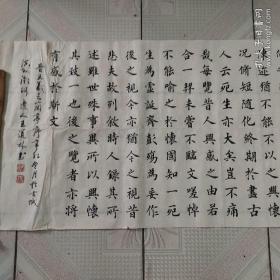 陳迹猶不能不以之興懷
況脩短隨化終期於盡古
人云死生亦大矣豈不痛
哉每覽昔人興感之由若
合一契未嘗不臨文嗟悼
不能喻之於懷固知一死
生為虛誕齊彭殤為妄作
後之視今亦猶今之視昔
悲夫故列敘時人錄其所
述雖世殊事異所以興懷
其致一也後之覽者亦將
有感於斯文
晉王羲之蘭亭序